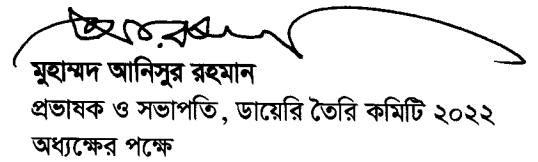 মুহাম্মদ আনিসুর রহমান
প্রভাষক ও সভাপতি, ডায়েরি তৈরি কমিটি ২০২২
অধ্যক্ষের পক্ষে